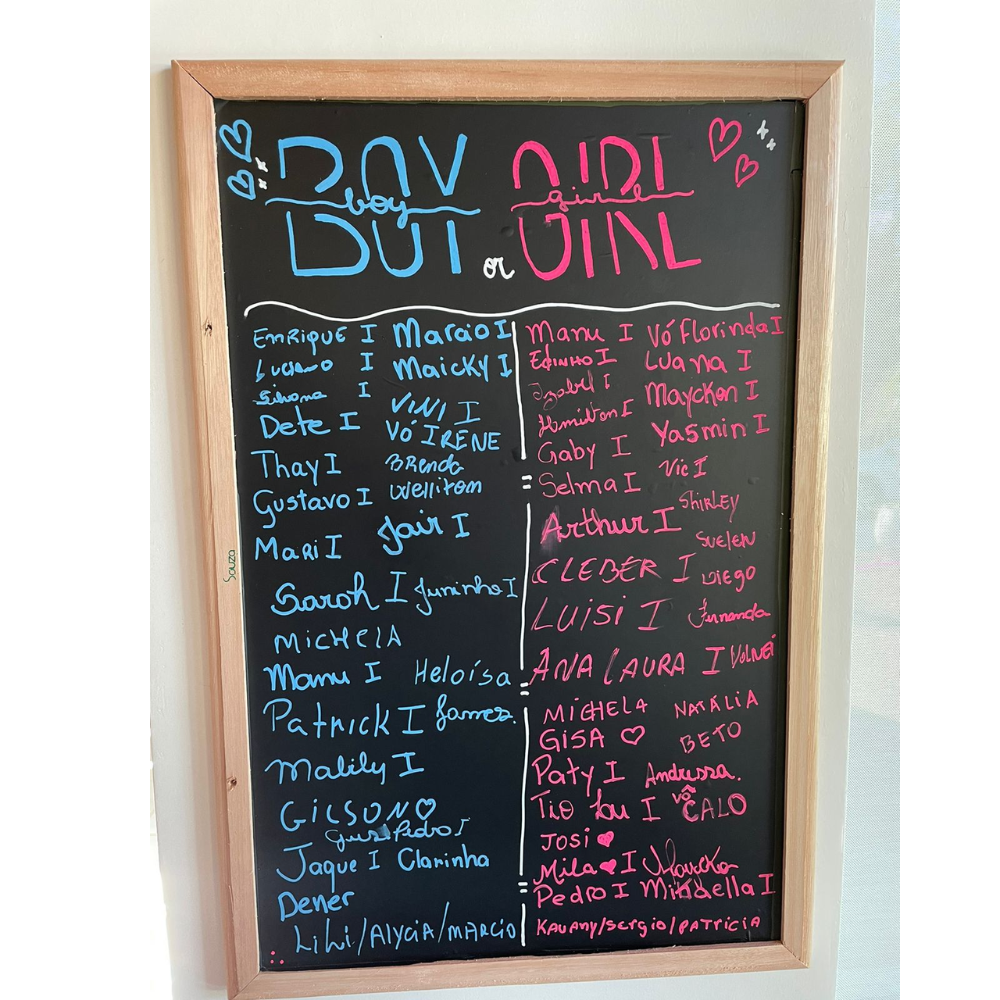 BOY
boy
or
GIRL
girl
EnRiQUE I Marcio I
Luciano I Maicky I
Simone I
VINI I
Dete I VÓ IRENE
Thay I Brenda
Gustavo I wellitom
Mari I Jair I
Sarah I Juninho I
MICHELA
Manu I Heloísa
Patrick I James.
Malily I
GILSON ♡
Pedro I
Jaque I Clarinha
Dener
Lili/ALYCIA/MARCIO
Manu I Vó Florinda I
Edinho I Luana I
Izabel I Mayckon I
Hamilton I Yasmin I
Gaby I
Selma I Vic I
SHIRLEY
Arthur I
SUELEN
CLEBER I DIEGO
LUISI I Fernanda
ANA LAURA I VOLNEI
MICHELA NATÁLIA
GISA ♡ BETO
Paty I Andressa.
Tio Lu I VÔ CALO
JOSI ♥
Mila ♥ I
Pedro I Mikaella I
KAUANY/Sergio/PATRICIA
Souza